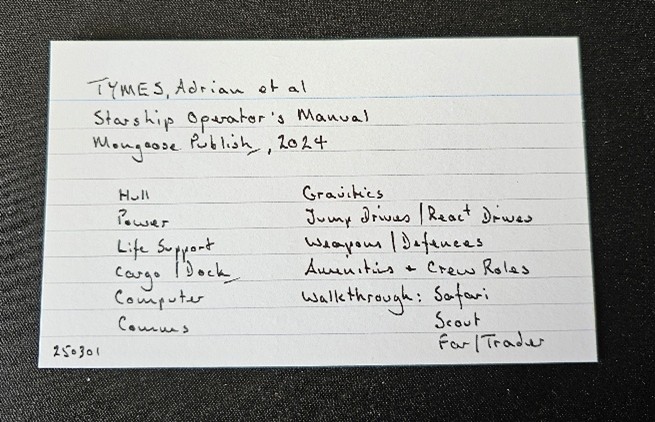 TYMES, Adrian et al
Starship Operator's Manual
Mongoose Publish, 2024
Hull
Power
Life Support
Cargo / Dock
Computer
Comms
Gravitics
Jump Drives / React Drives
Weapons / Defences
Amenities + Crew Roles
Walkthrough: Safari
Scout
Far / Trader
250301